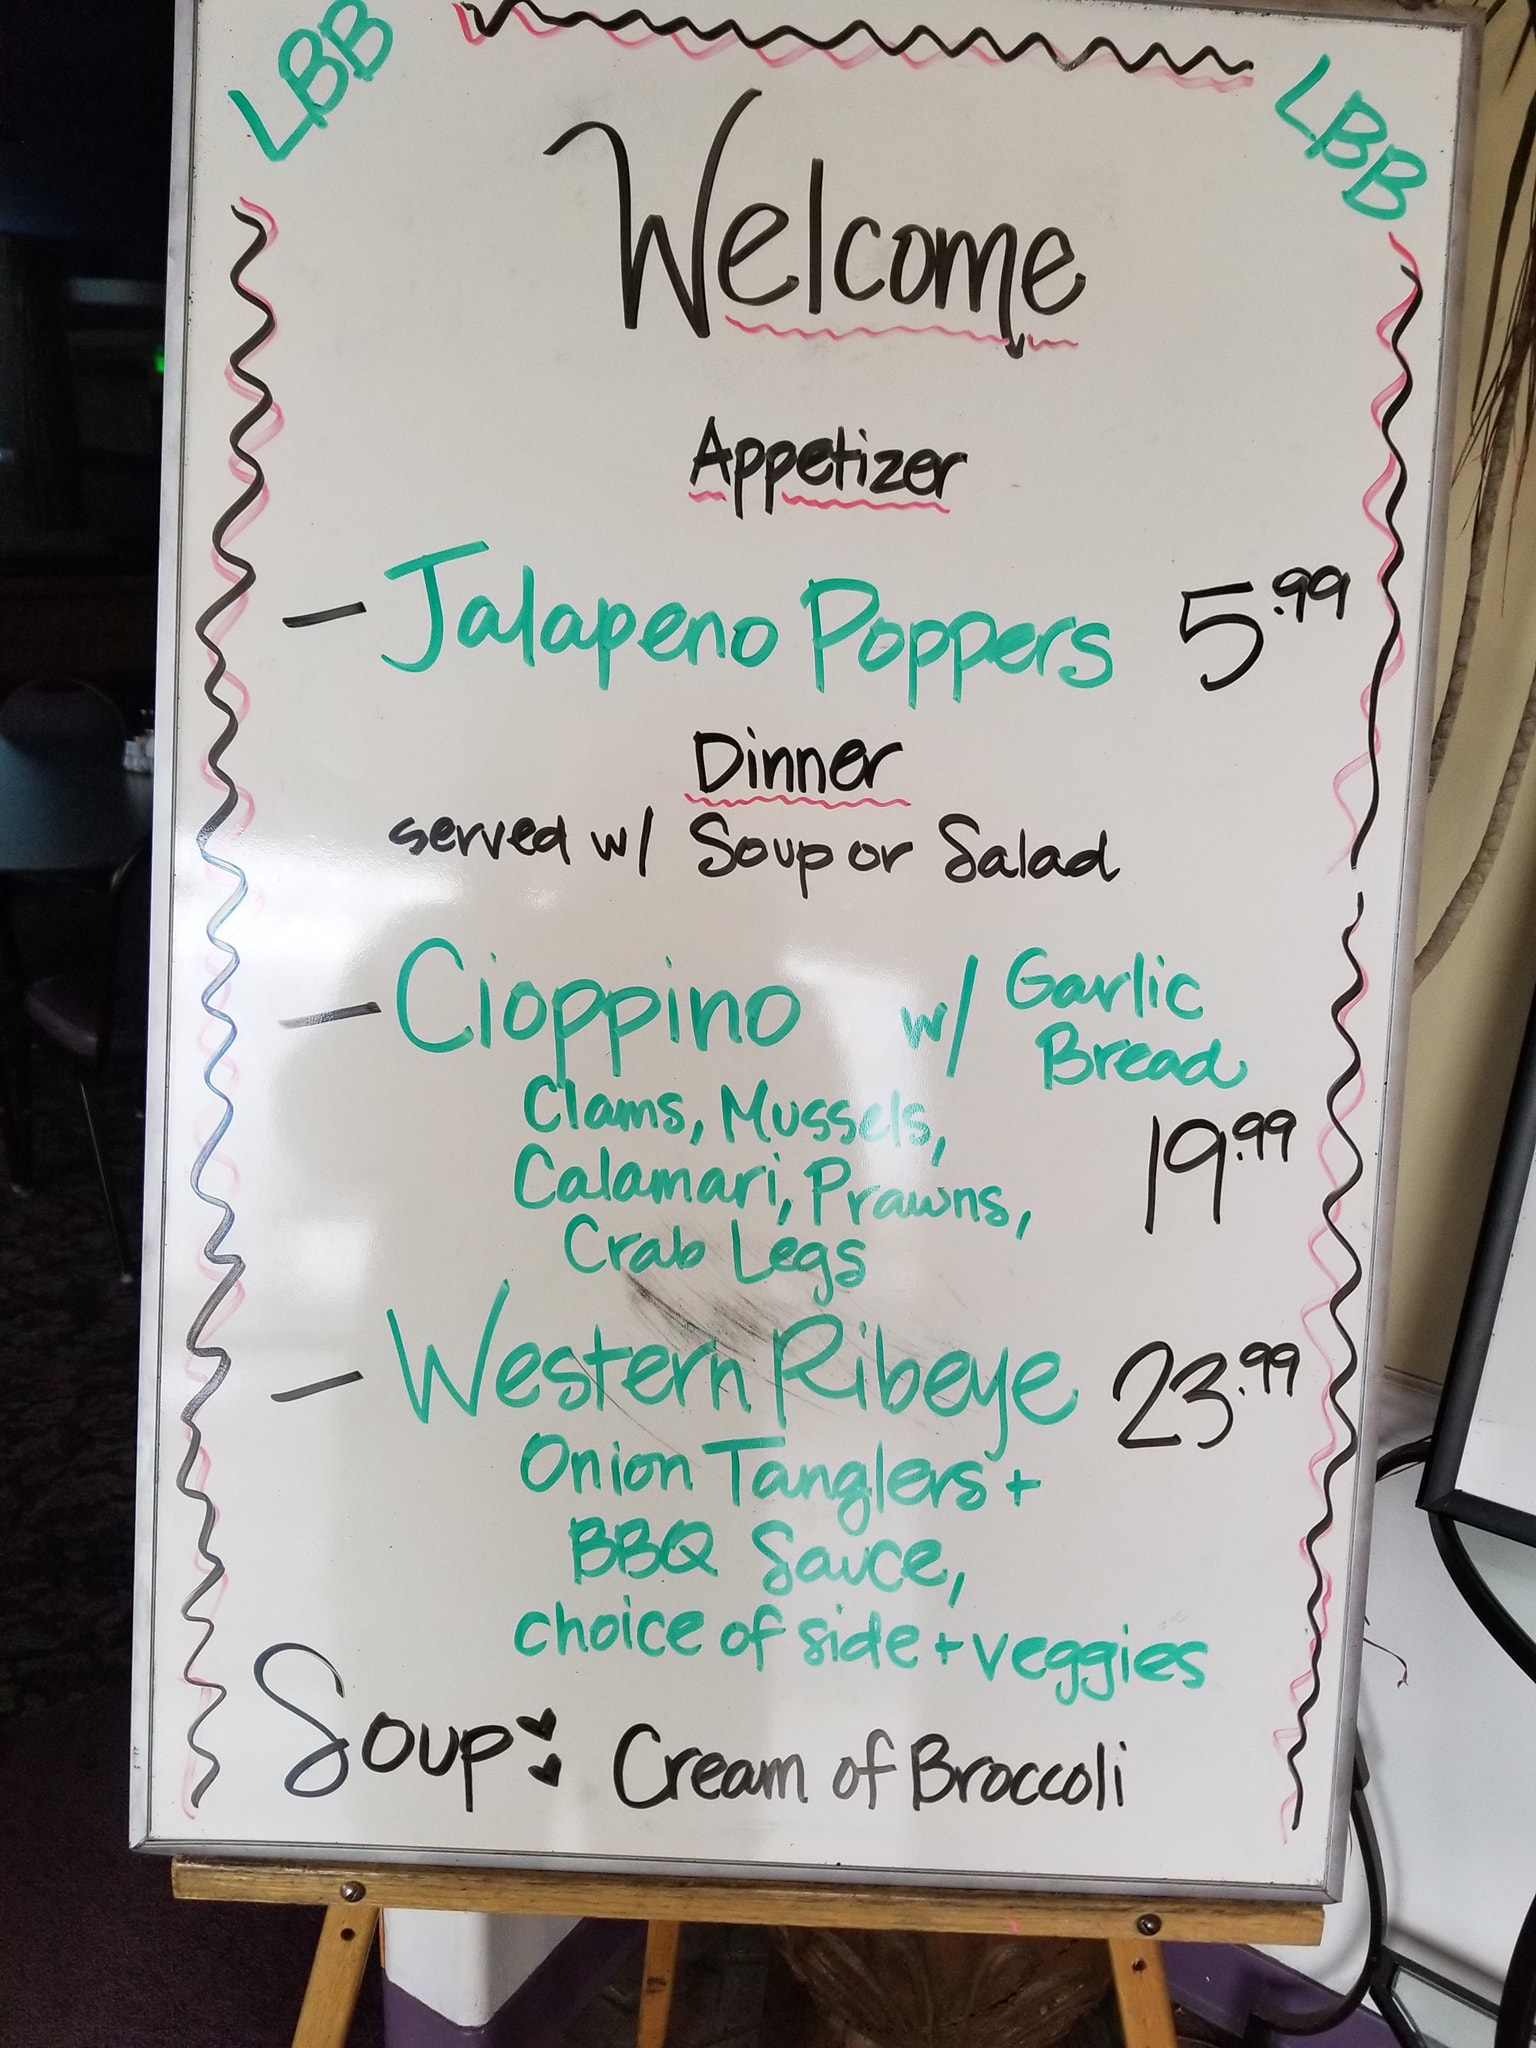 LBB
LBB
Welcome
Appetizer
- Jalapeno Poppers 5.99
Dinner
served w/ Soup or Salad
- Cioppino w/ Garlic
Bread
Clams, Mussels,
Calamari, Prawns, 19.99
Crab Legs
- Western Ribeye 23.99
Onion Tanglers +
BBQ Sauce,
choice of side + veggies
Soup: Cream of Broccoli